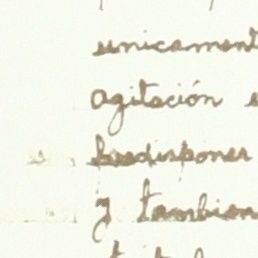 unicament
agitación
predisponer
y tambien